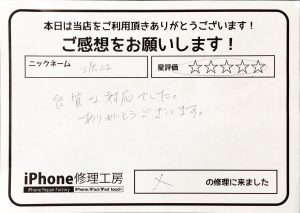 本日は当店をご利用頂きありがとうございます！
ご感想をお願いします！
ニックネーム
星評価 ☆☆☆☆☆
良質な対応でした。
ありがとうございます。
iPhone修理工房
iPhone Repair Factory iPhone/iPad/iPod touch
の修理に来ました